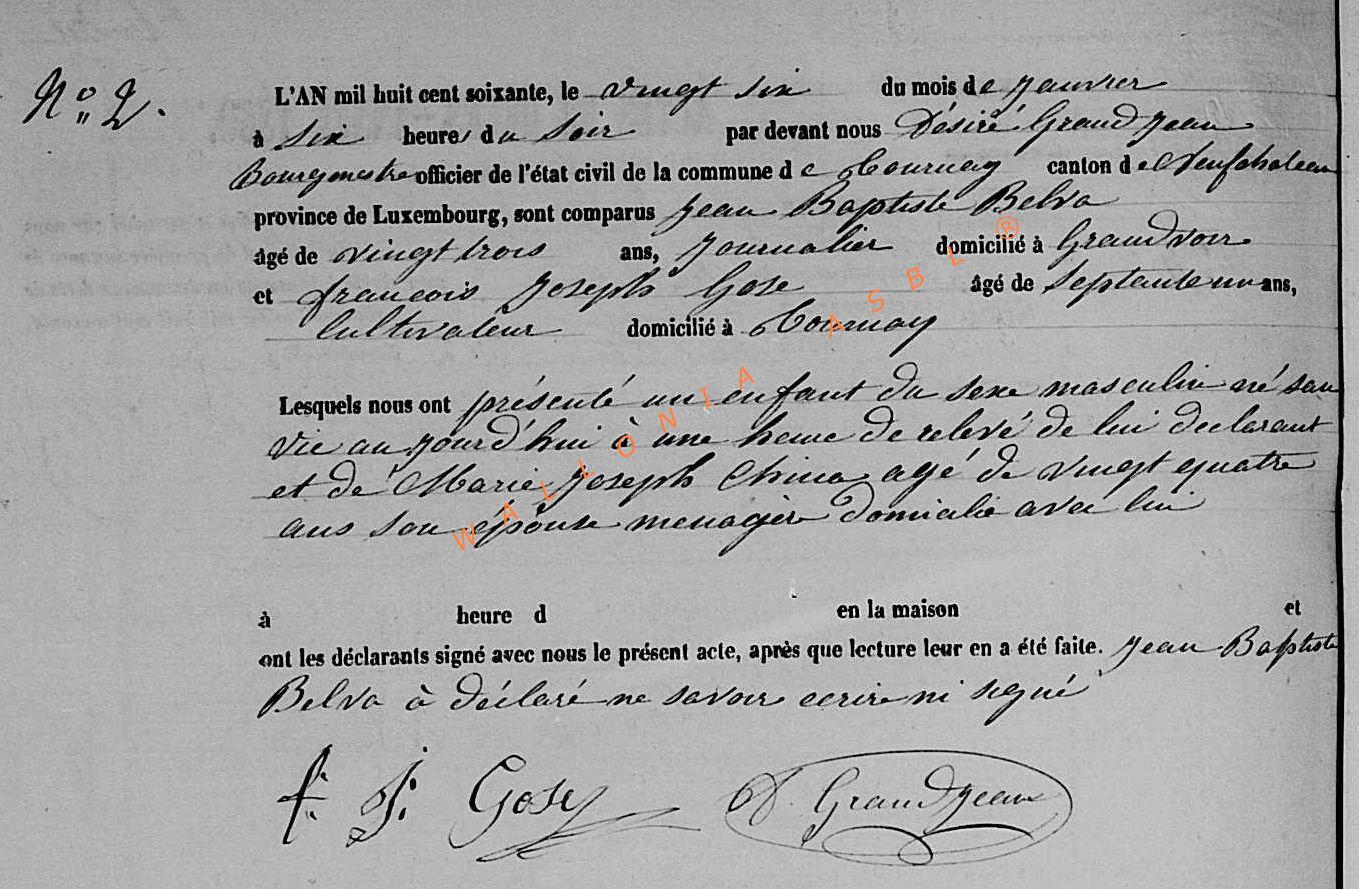 N° 2.
L'AN mil huit cent soixante, le vingt six du mois de janvier
à six heures du soir par devant nous Désiré Grandjean
Bourgmestre officier de l'état civil de la commune de Tournay canton de Neufchateau
province de Luxembourg, sont comparus Jean Baptiste Belva
âgé de vingt trois ans, journalier domicilié à Grandvoir
et francois Joseph Gose âgé de septante un ans,
Cultivateur domicilié à Tournay
Lesquels nous ont présenté un enfant du sexe masculin né san
vie aujourd'hui à une heure de relevé de lui declarant
et de Marie Joseph China agé de vingt quatre
ans son épouse menagère domicilié avec lui
à heure d en la maison et
ont les déclarants signé avec nous le présent acte, après que lecture leur en a été faite. Jean Baptiste
Belva à déclaré ne savoir ecrire ni signé
f. J. Gose
D. Grandjean
WALLONIA ASBL ®